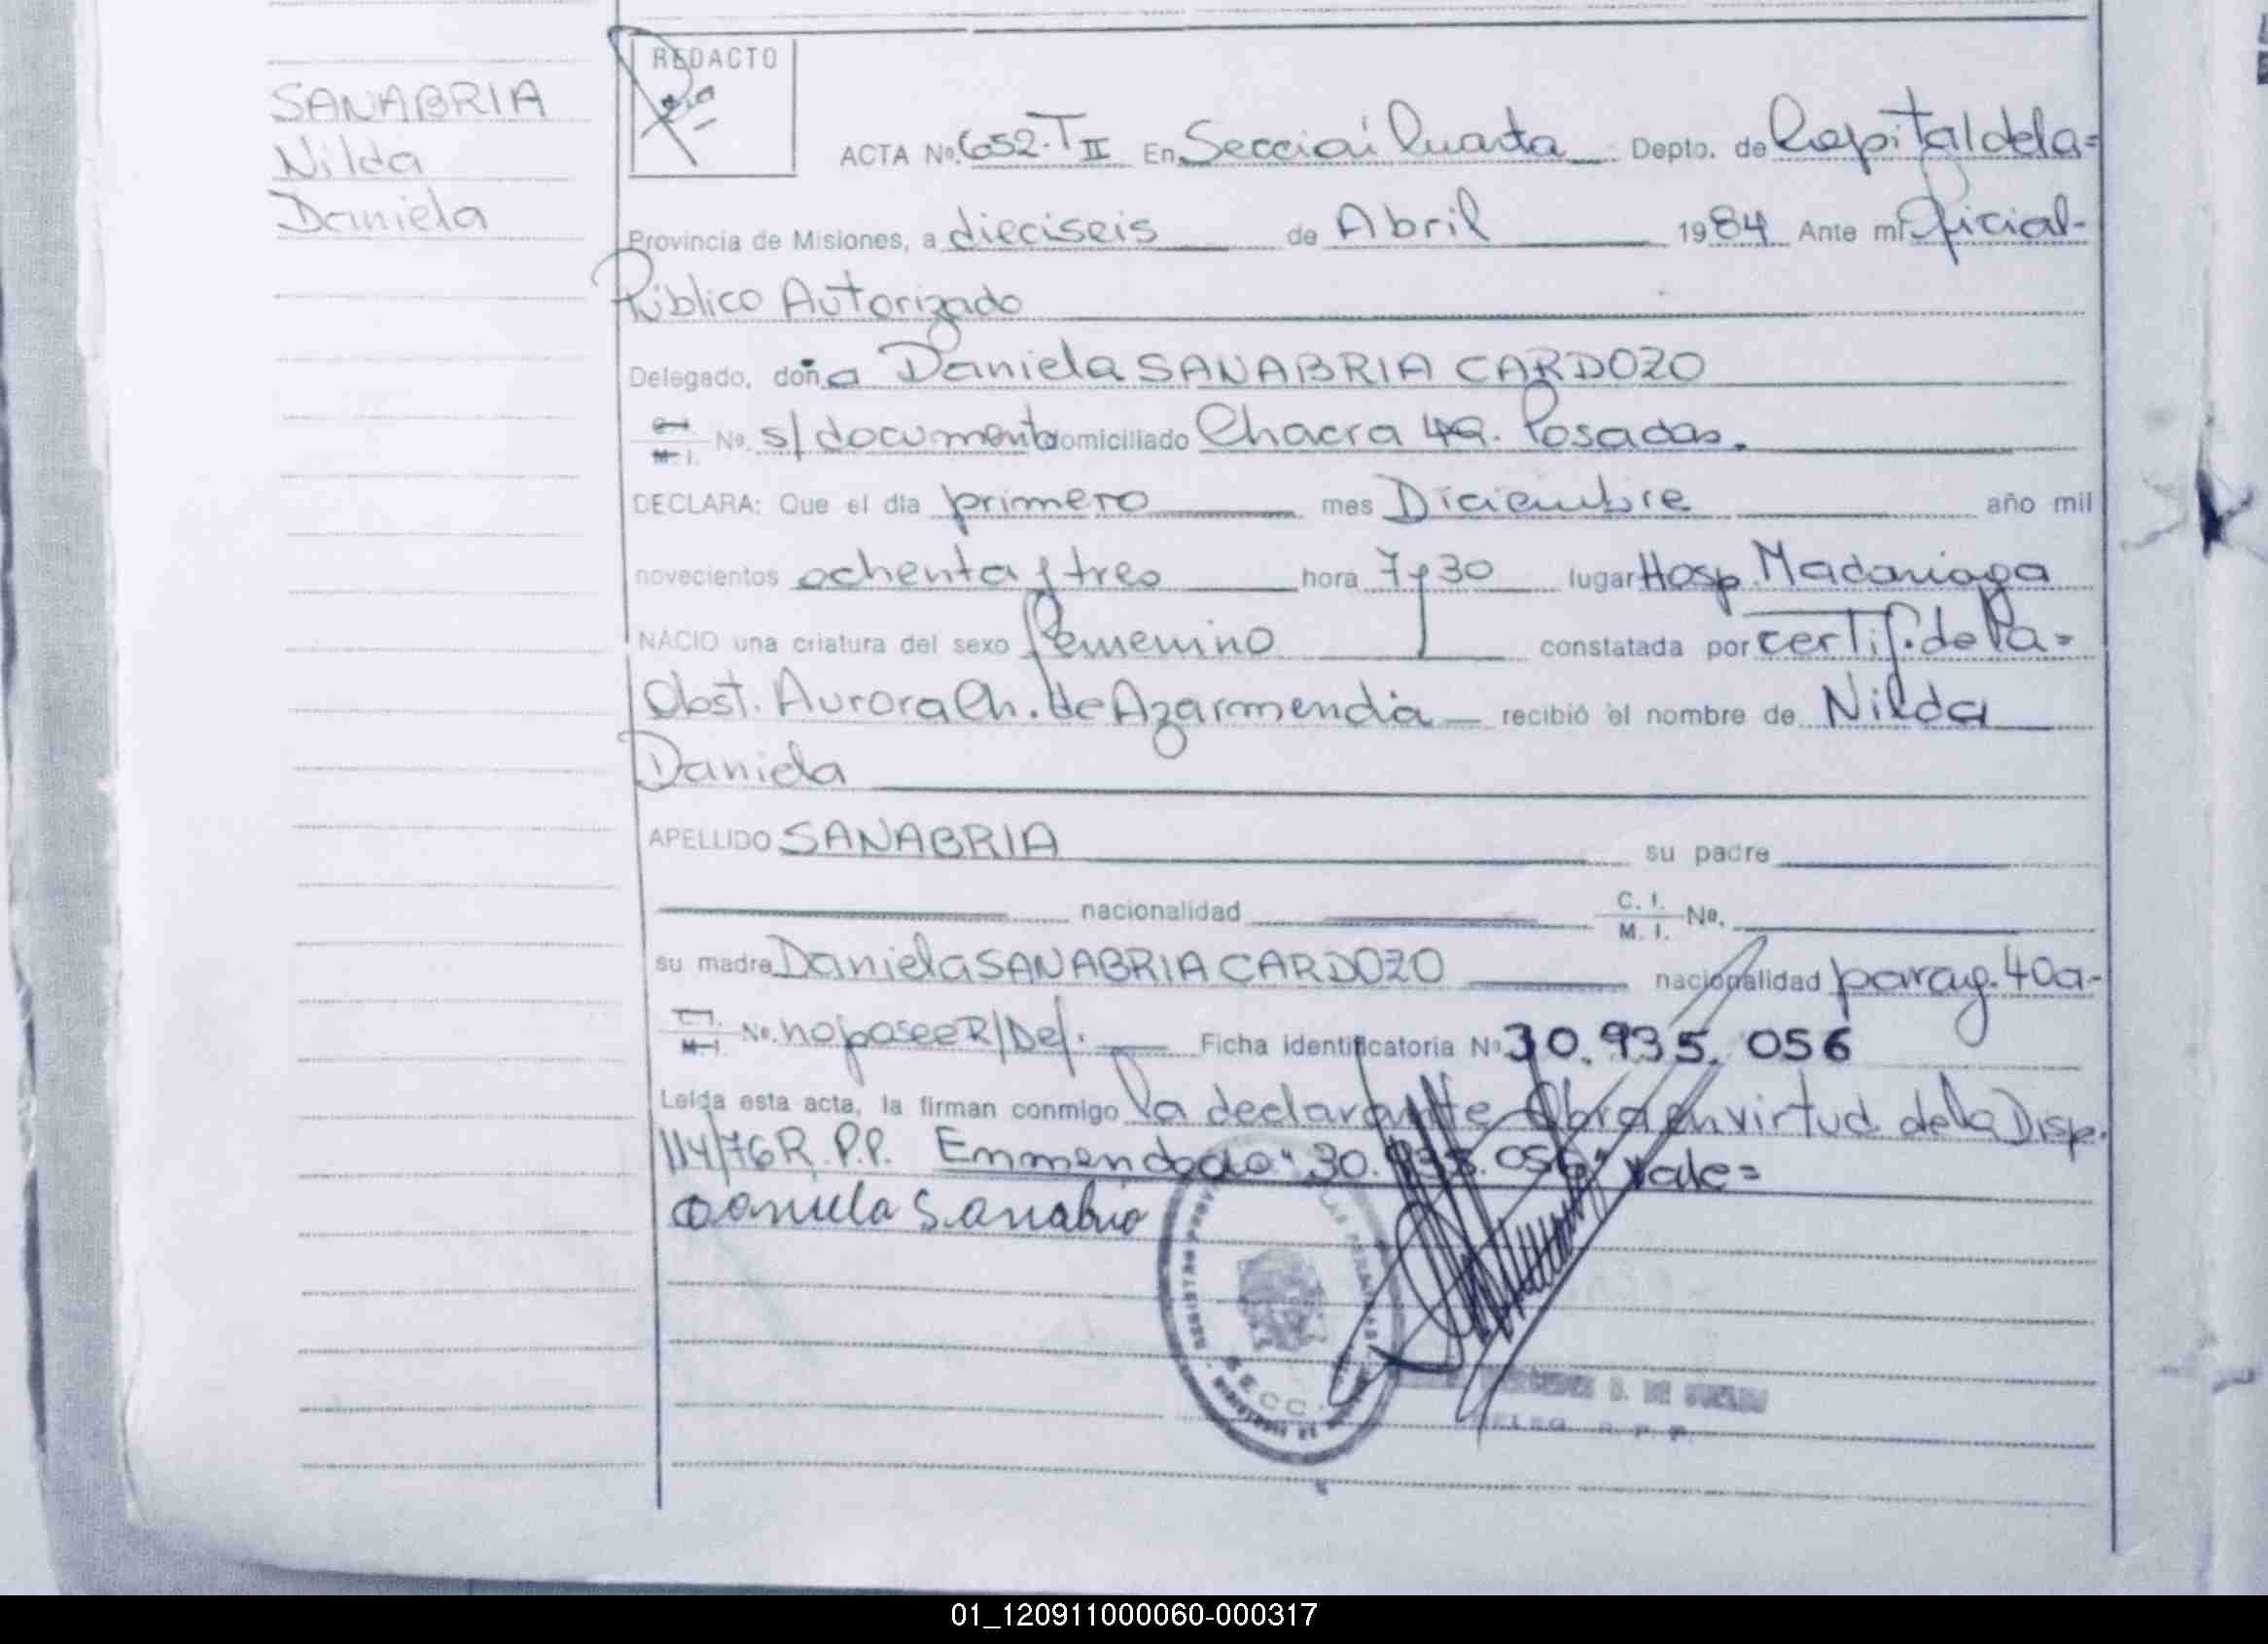 SANABRIA
Nilda
Daniela
REDACTO
ACTA Nº. 652-T II En Sección Cuarta Depto. de Capital de la=
Provincia de Misiones, a dieciseis de Abril 1984 Ante mí Oficial-
Público Autorizado
Delegado, doña Daniela SANABRIA CARDOZO
C.I. M.I. Nº. s/documento domiciliado Chacra 49. Posadas.
DECLARA: Que el día primero mes Diciembre año mil
novecientos ochenta y tres hora 7 y 30 lugar Hosp. Madariaga
NACIO una criatura del sexo femenino constatada por certif. de la=
Obst. Aurora Ch. de Azarmendia recibió el nombre de Nilda
Daniela
APELLIDO SANABRIA su padre
nacionalidad C. I. M. I. Nº.
su madre Daniela SANABRIA CARDOZO nacionalidad parag. 40a-
C.I. M.I. Nº. no posee R/Def. Ficha identificatoria Nº 30.935.056
Leída esta acta, la firman conmigo la declarante Obra en virtud de la Disp.
114/76 R.P.P. Emmendado "30.935.056" Vale=
Daniela Sanabria
SECC.
R. P. P.
01_120911000060-000317